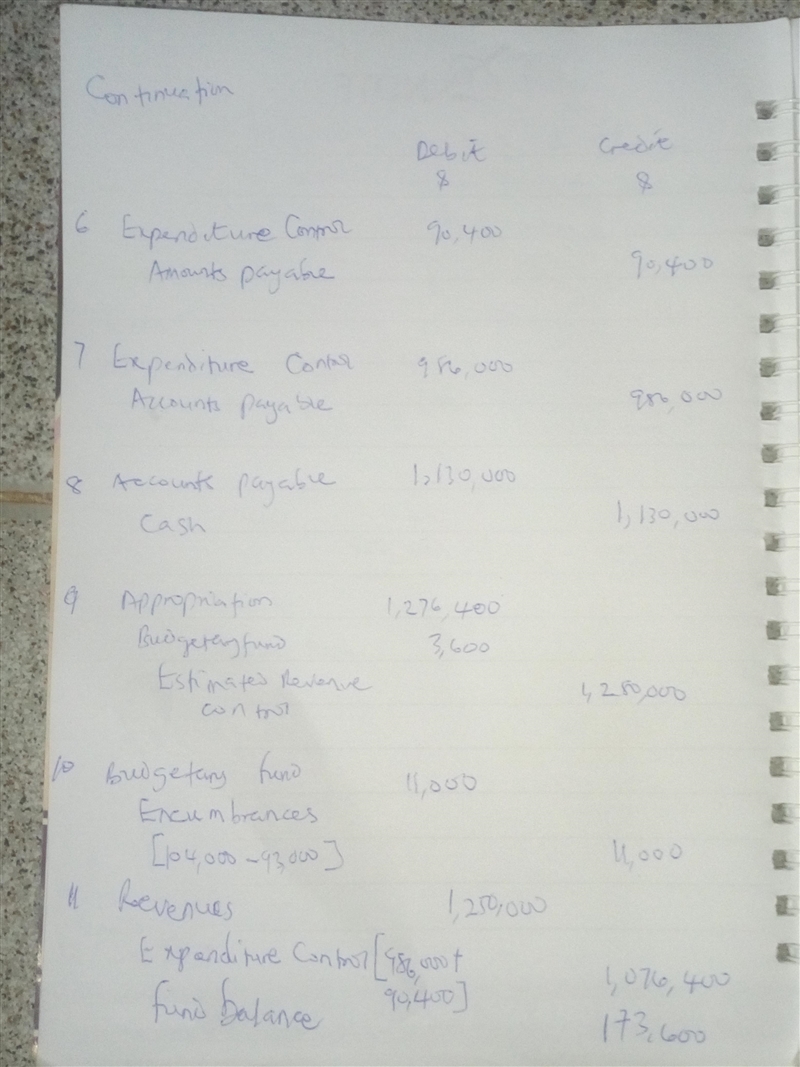 Continuation
Debit Credit
$ $
6 Expenditure Control 90,400
Amounts payable 90,400
7 Expenditure Control 986,000
Accounts payable 986,000
8 Accounts payable 1,130,000
Cash 1,130,000
9 Appropriation 1,276,400
Budgetary fund 3,600
Estimated Revenue 1,280,000
control
10 Budgetary fund 11,000
Encumbrances
[104,000 - 93,000] 11,000
11 Revenues 1,250,000
Expenditure Control [986,000+
90,400] 1,076,400
fund balance 173,600